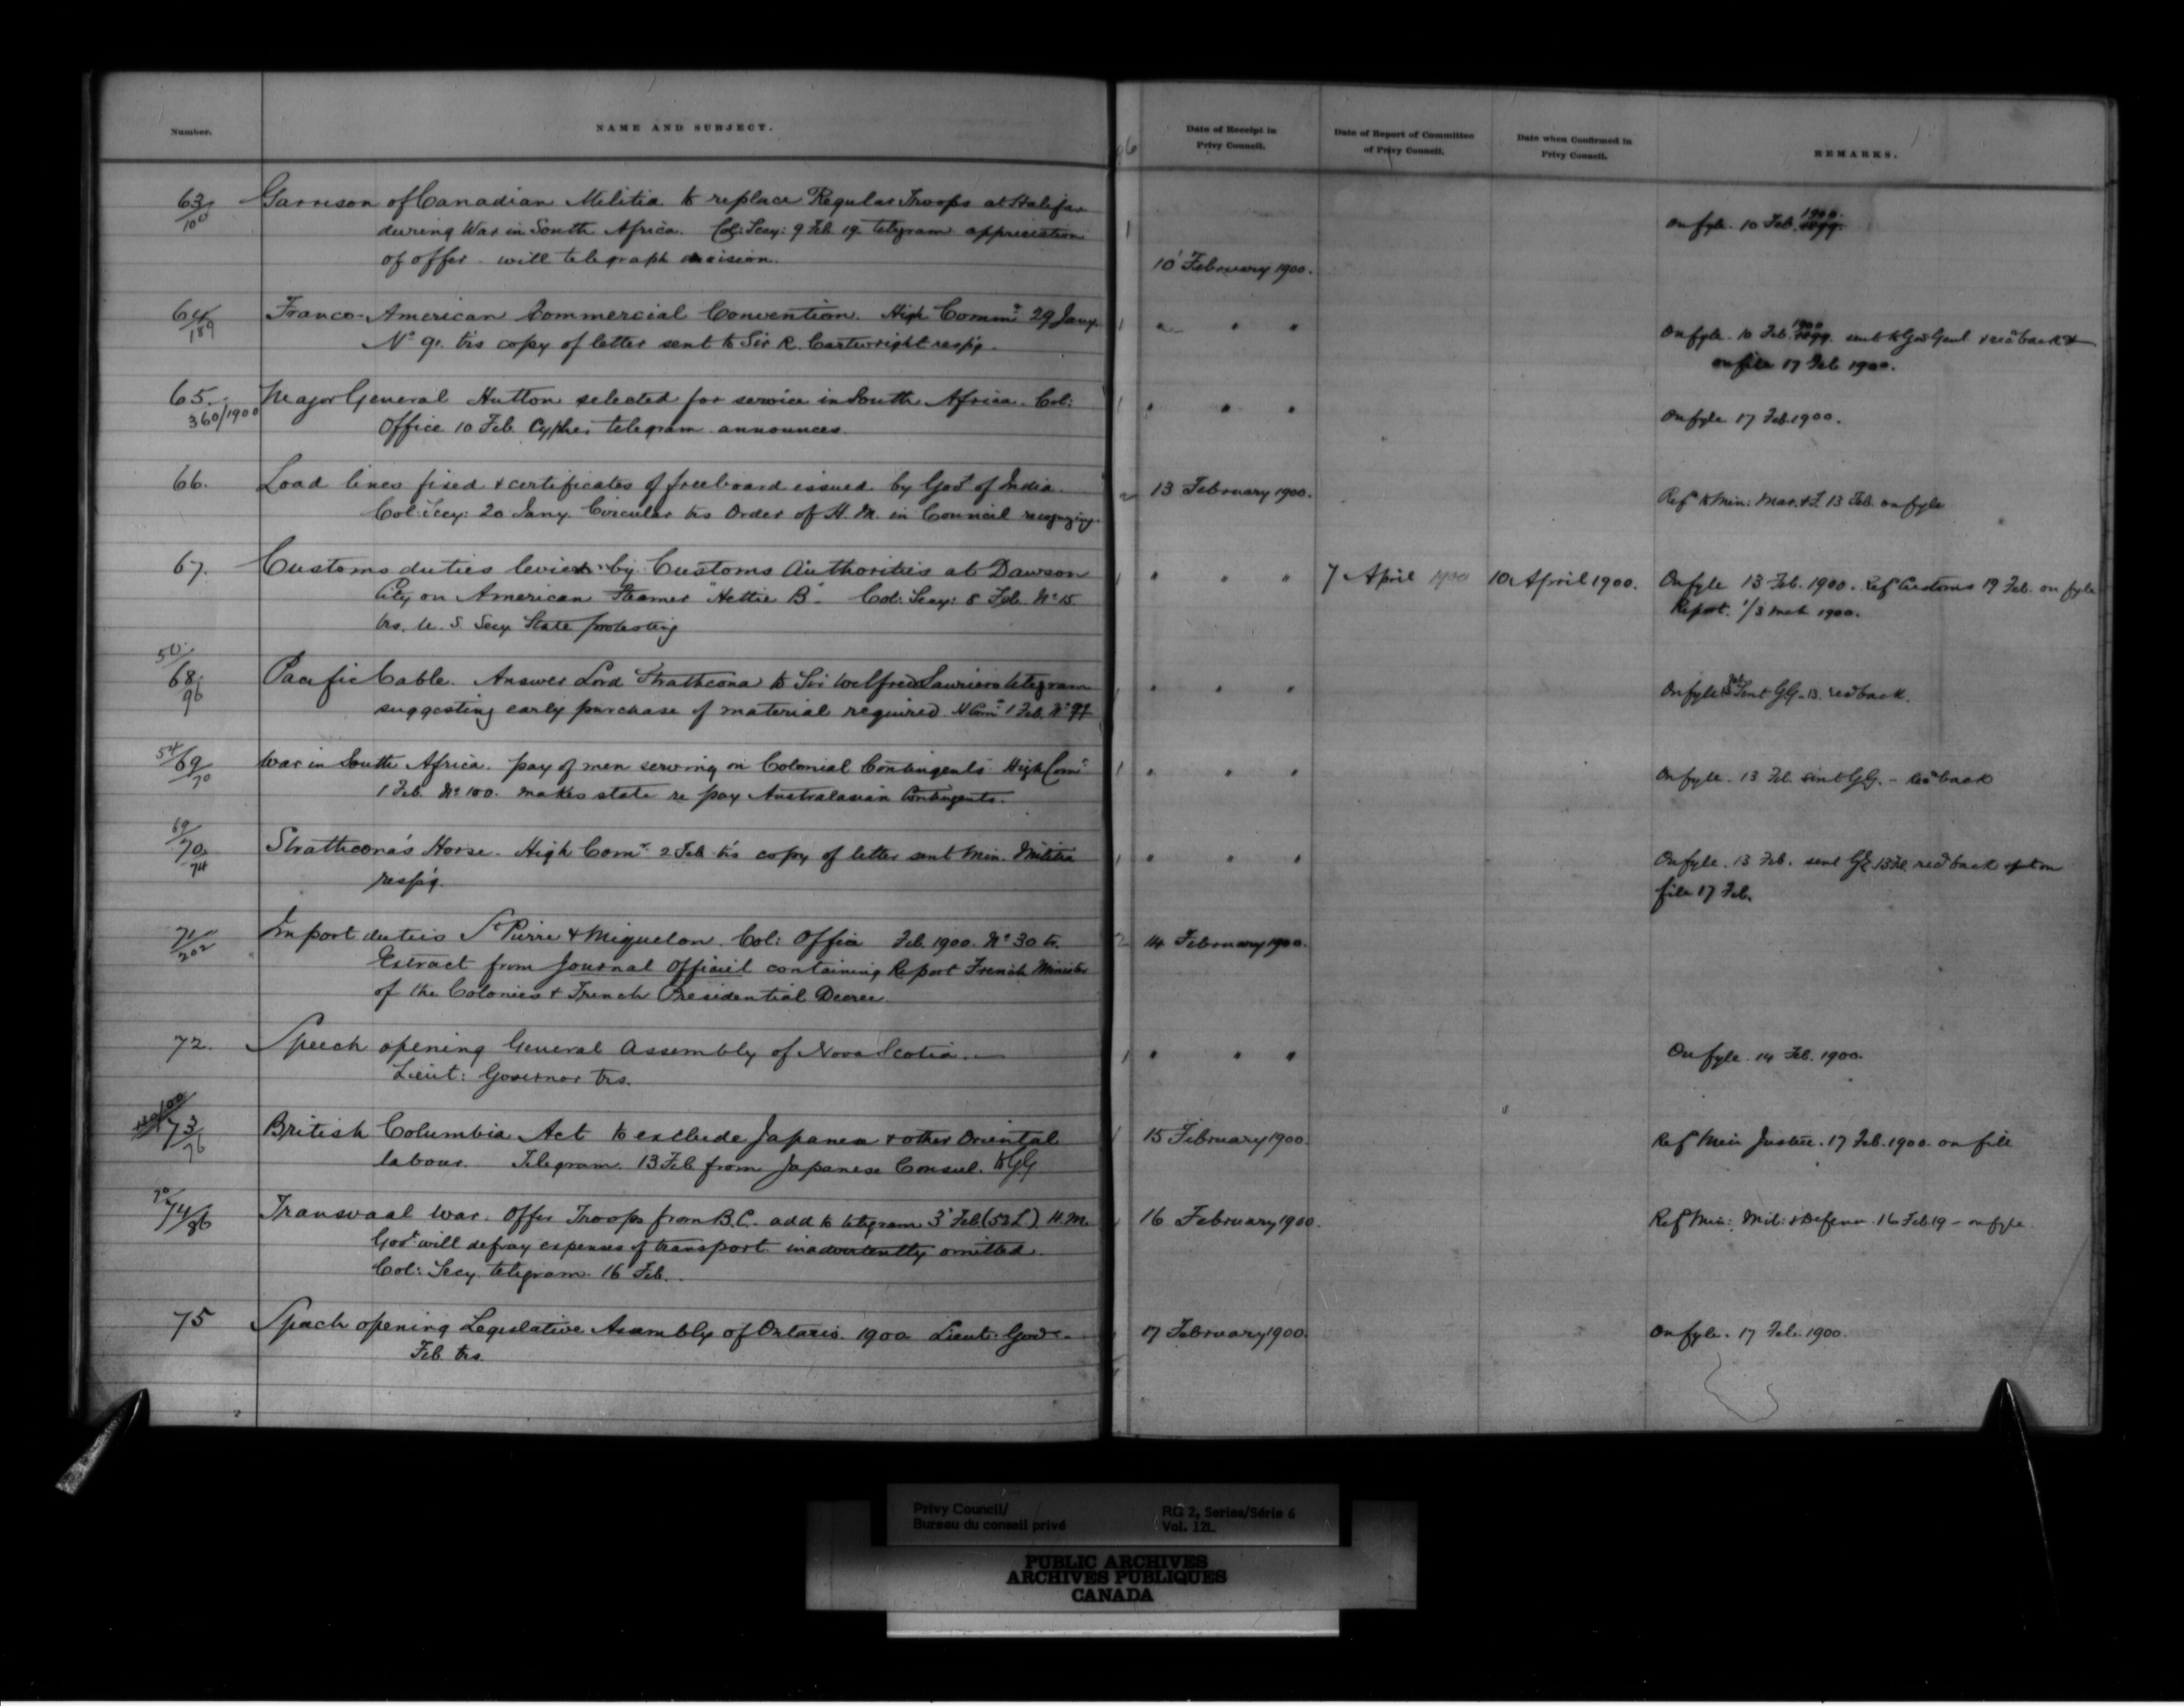 Number.
NAME AND SUBJECT.
Date of Receipt in Privy Council.
Date of Report of Committee of Privy Council.
Date when Confirmed in Privy Council.
REMARKS.
63/100
Garrison of Canadian Militia to replace Regular Troops at Halifax
during War in South Africa. Col: Secy: 9 Feb. 19 telegram appreciation
of offer - will telegraph decision.
1
10 February 1900.
On fyle. 10 Feb. 1900.
64/189
Franco-American Commercial Convention. High Commr 29 Jany.
No 91. trs copy of letter sent to Sir R. Cartwright resp'g.
1 " " "
On fyle. 10 Feb. 1900 sent to Gov Genl & rec'd back &
on file 17 Feb 1900.
65.
360/1900
Major General Hutton selected for service in South Africa. Col:
Office 10 Feb. Cypher telegram announces.
1 " " "
On fyle 17 Feb 1900.
66.
Load lines fixed & certificates of freeboard issued by Govt of India.
Col: Secy: 20 Jany. Circular trs Order of H.M. in Council recognizing.
2
13 February 1900.
Ref to Min: Mar. & F. 13 Feb. on fyle
67.
Customs duties levied by Customs Authorities at Dawson
City on American Steamer "Hettie B". Col: Secy: 8 Feb. No 15
trs. U.S. Secy State protesting
1 " " "
7 April 1900
10 April 1900.
On fyle 13 Feb. 1900. Ref Customs 19 Feb. on fyle
Report. 1/3 Mch 1900.
50/68/96
Pacific Cable. Answer Lord Strathcona to Sir Wilfred Lauriers telegram
suggesting early purchase of material required. H Comr 1 Feb. No 97
1 " " "
On fyle Sent GG - 13. recd back.
54/69/70
War in South Africa. pay of men serving in Colonial Contingents. High Comr
1 Feb. No 100. makes state re pay Australasian Contingents.
1 " " "
On fyle. 13 Feb. sent G.G. - recd back
69/70/74
Strathcona's Horse. High Comr 2 Feb trs copy of letter sent Min. Militia
resp'g.
1 " " "
On fyle. 13 Feb. sent GG 13 Feb. recd back & put on
file 17 Feb.
71/202
Import duties St Pierre & Miquelon. Col: Office Feb. 1900. No 30 tr.
Extract from Journal Officiel containing Report French Minister
of the Colonies & French Presidential Decree.
2
14 February 1900.
72.
Speech opening General Assembly of Nova Scotia.
Lieut: Governor trs.
1 " " "
On fyle. 14 Feb. 1900.
73/76
British Columbia Act to exclude Japanese & other Oriental
labour. Telegram. 13 Feb from Japanese Consul. to GG
1
15 February 1900.
Ref Min Justice. 17 Feb. 1900. on file
70/74/86
Transvaal War. Offer Troops from B.C. add to telegram 3 Feb (52 L) H.M.
Govt will defray expenses of transport inadvertently omitted.
Col: Secy. telegram 16 Feb.
16 February 1900.
Ref Min: Mil: & Defence 16 Feb 19 - on fyle
75
Speech opening Legislative Assembly of Ontario. 1900 Lieut: Govr
Feb. trs.
17 February 1900.
On fyle. 17 Feb. 1900.
Privy Council/
Bureau du conseil privé
RG 2, Series/Série 6
Vol. 12L
PUBLIC ARCHIVES
ARCHIVES PUBLIQUES
CANADA